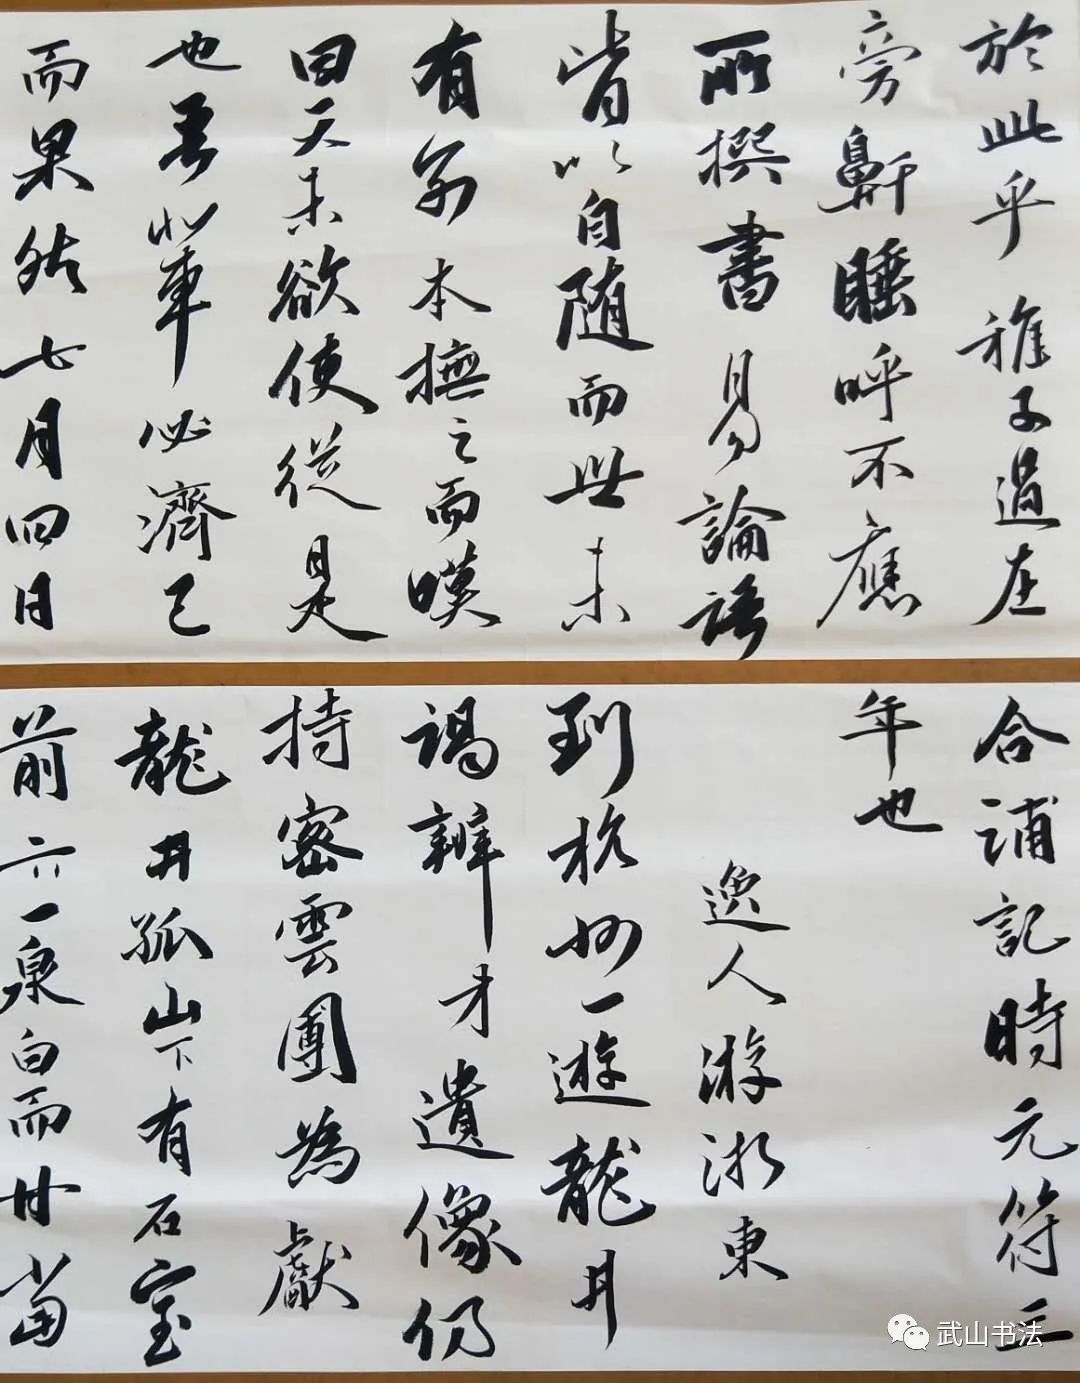 於此乎稚子過在
旁鼾睡呼不應
所撰書易論語
皆以自隨而世未
有别本撫之而嘆
曰天未欲使從是
也吾輩必濟已
而果然七月四日
合浦記時元符三
年也
逸人游浙東
到杭州一遊龍井
謁辯才遺像仍
持密雲團為獻
龍井孤山下有石室
前六一泉白而甘當
武山书法